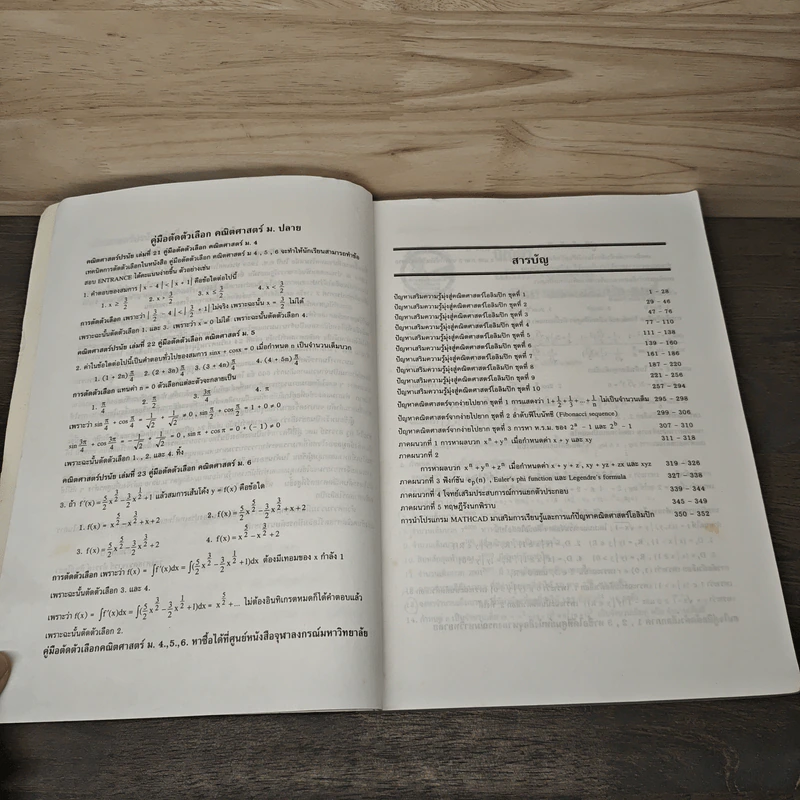 คู่มือตัดตัวเลือก คณิตศาสตร์ ม. ปลาย
คณิตศาสตร์ปรนัย เล่มที่ 21 คู่มือตัดตัวเลือก คณิตศาสตร์ ม. 4
เทคนิคการตัดตัวเลือกในหนังสือ คู่มือตัดตัวเลือก คณิตศาสตร์ ม 4 , 5 , 6 จะทำให้นักเรียนสามารถทำข้อ
สอบ ENTRANCE ได้คะแนนง่ายขึ้น ตัวอย่างเช่น
1. คำตอบของสมการ |x − 4| < |x + 1| คือข้อใดต่อไปนี้
1. x ≥ 3/2 2. x > 3/2 3. x ≤ 3/2 4. x < 3/2
การตัดตัวเลือก เพราะว่า |3/2 − 4| < |3/2 + 1| ไม่จริง เพราะฉะนั้น x = 3/2 ไม่ได้
เพราะฉะนั้นตัดตัวเลือก 1. และ 3. เพราะว่า x = 0 ไม่ได้ เพราะฉะนั้นตัดตัวเลือก 4.
คณิตศาสตร์ปรนัย เล่มที่ 22 คู่มือตัดตัวเลือก คณิตศาสตร์ ม. 5
2. ค่าในข้อใดต่อไปนี้เป็นคำตอบทั่วไปของสมการ sinx + cosx = 0 เมื่อกำหนด n เป็นจำนวนเต็มบวก
1. (1 + 2n)π/4 2. (2 + 3n)π/4 3. (3 + 4n)π/4 4. (4 + 5n)π/4
การตัดตัวเลือก แทนค่า n = 0 ตัวเลือกแต่ละตัวจะกลายเป็น
1. π/4 2. π/2 3. 3π/4 4. π
เพราะว่า sin π/4 + cos π/4 = 1/√2 + 1/√2 ≠ 0 , sin π/2 + cos π/2 = 1 + 0 ≠ 0
sin 3π/4 + cos 3π/4 = −1/√2 + 1/√2 = 0 , sin π + cos π = 0 + (−1) ≠ 0
เพราะฉะนั้นตัดตัวเลือก 1., 2. และ 4. ทิ้ง
คณิตศาสตร์ปรนัย เล่มที่ 23 คู่มือตัดตัวเลือก คณิตศาสตร์ ม. 6
3. ถ้า f'(x) = 5/2 x^(3/2) − 3/2 x^(1/2) + 1 แล้วสมการเส้นโค้ง y = f(x) คือข้อใด
1. f(x) = x^(5/2) − x^(3/2) + x + 2 2. f(x) = 5/2 x^(5/2) − 3/2 x^(3/2) + x + 2
3. f(x) = 5/2 x^(5/2) − 3/2 x^(3/2) + 2 4. f(x) = x^(5/2) − x^(3/2) + 2
การตัดตัวเลือก เพราะว่า f(x) = ∫f'(x)dx = ∫(5/2 x^(3/2) − 3/2 x^(1/2) + 1)dx ต้องมีเทอมของ x กำลัง 1
เพราะฉะนั้นตัดตัวเลือก 3. และ 4.
เพราะว่า f(x) = ∫f'(x)dx = ∫(5/2 x^(3/2) − 3/2 x^(1/2) + 1)dx = x^(5/2) + ... ไม่ต้องอินทิเกรตหมดก็ได้คำตอบแล้ว
เพราะฉะนั้นตัดตัวเลือก 2.
คู่มือตัดตัวเลือกคณิตศาสตร์ ม. 4.,5.,6. หาซื้อได้ที่ศูนย์หนังสือจุฬาลงกรณ์มหาวิทยาลัย
สารบัญ
ปัญหาเสริมความรู้มุ่งสู่คณิตศาสตร์โอลิมปิก ชุดที่ 1 1 - 28
ปัญหาเสริมความรู้มุ่งสู่คณิตศาสตร์โอลิมปิก ชุดที่ 2 29 - 46
ปัญหาเสริมความรู้มุ่งสู่คณิตศาสตร์โอลิมปิก ชุดที่ 3 47 - 76
ปัญหาเสริมความรู้มุ่งสู่คณิตศาสตร์โอลิมปิก ชุดที่ 4 77 - 110
ปัญหาเสริมความรู้มุ่งสู่คณิตศาสตร์โอลิมปิก ชุดที่ 5 111 - 138
ปัญหาเสริมความรู้มุ่งสู่คณิตศาสตร์โอลิมปิก ชุดที่ 6 139 - 160
ปัญหาเสริมความรู้มุ่งสู่คณิตศาสตร์โอลิมปิก ชุดที่ 7 161 - 186
ปัญหาเสริมความรู้มุ่งสู่คณิตศาสตร์โอลิมปิก ชุดที่ 8 187 - 220
ปัญหาเสริมความรู้มุ่งสู่คณิตศาสตร์โอลิมปิก ชุดที่ 9 221 - 256
ปัญหาเสริมความรู้มุ่งสู่คณิตศาสตร์โอลิมปิก ชุดที่ 10 257 - 294
ปัญหาคณิตศาสตร์จากง่ายไปยาก ชุดที่ 1 การแสดงว่า 1 + 1/2 + 1/3 + ... + 1/n ไม่เป็นจำนวนเต็ม 295 - 298
ปัญหาคณิตศาสตร์จากง่ายไปยาก ชุดที่ 2 ลำดับฟีโบนักชี (Fibonacci sequence) 299 - 306
ปัญหาคณิตศาสตร์จากง่ายไปยาก ชุดที่ 3 การหา ห.ร.ม. ของ 2^a − 1 และ 2^b − 1 307 - 310
ภาคผนวกที่ 1 การหาผลบวก x^n + y^n เมื่อกำหนดค่า x + y และ xy 311 - 318
ภาคผนวกที่ 2
การหาผลบวก x^n + y^n + z^n เมื่อกำหนดค่า x + y + z , xy + yz + zx และ xyz 319 - 326
ภาคผนวกที่ 3 ฟังก์ชัน e_p(n) , Euler's phi function และ Legendre's formula 327 - 338
ภาคผนวกที่ 4 โจทย์เสริมประสบการณ์การแยกตัวประกอบ 339 - 344
ภาคผนวกที่ 5 ทฤษฎีรังนกพิราบ 345 - 349
การนำโปรแกรม MATHCAD มาเสริมการเรียนรู้และการแก้ปัญหาคณิตศาสตร์โอลิมปิก 350 - 352